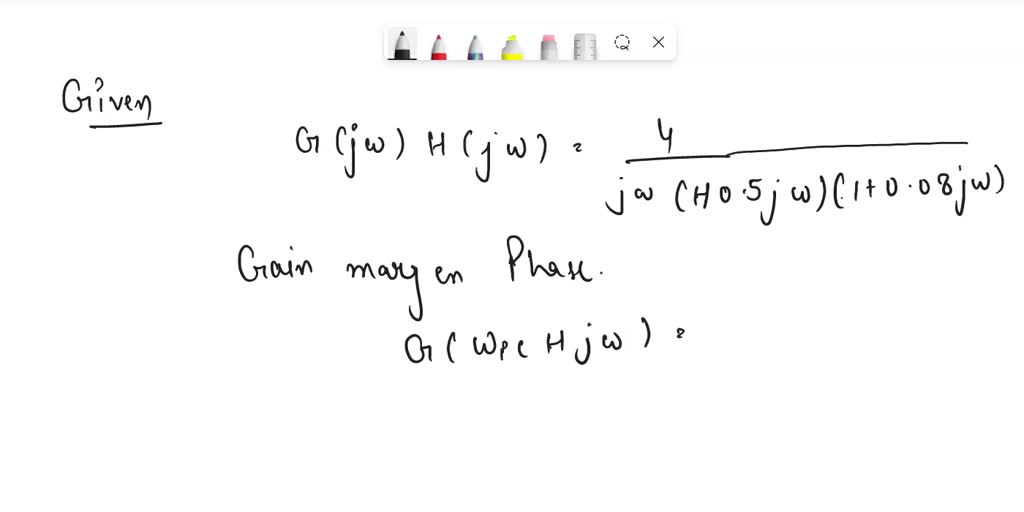 Given
G(jω) H(jω) = 4 / jω (1+0.5jω)(1+0.08jω)
Gain margen Phase.
G(ωpc H jω) =